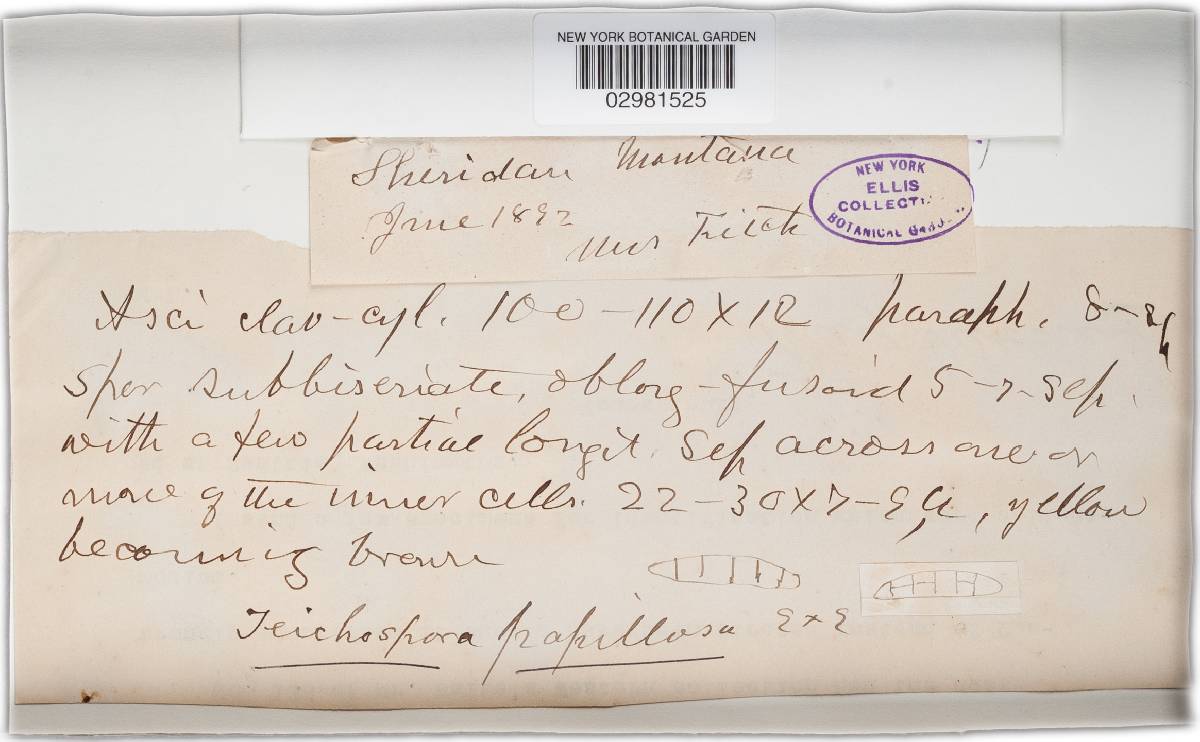 NEW YORK BOTANICAL GARDEN
02981525
Sheridan Montana
June 1892
Mrs Fitch
NEW YORK
ELLIS
COLLECTI
BOTANICAL GARD
Asci clav-cyl. 100-110 X 12 paraph. 8-
Spor subbiseriate, oblong-fusoid 5-7-sep.
with a few partial longit. sep across one or
more of the inner cells. 22-30 X 7-9 µ, yellow
becoming brown
Teichospora papillosa E & E